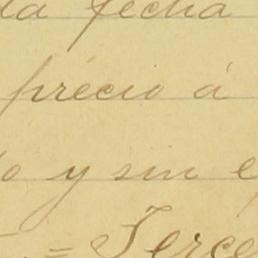 da fecha
précio á
y sin
= Terce